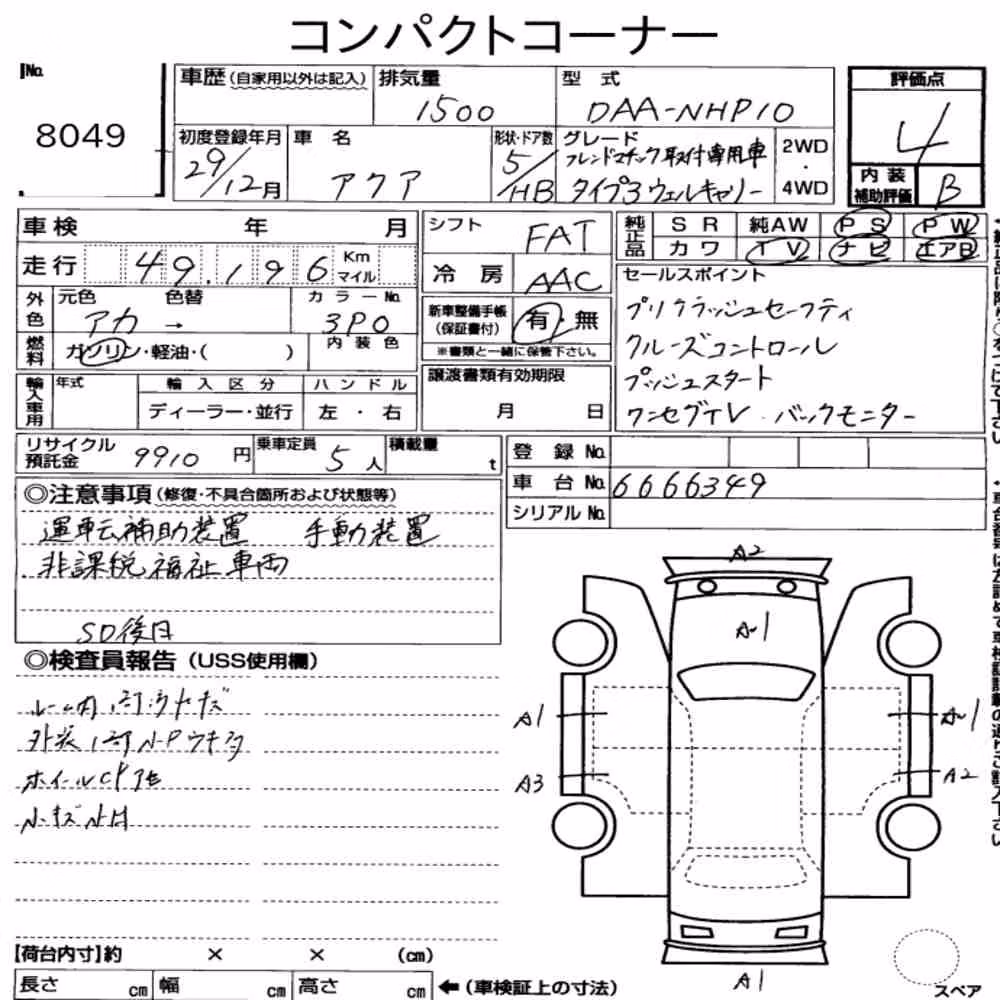 コンパクトコーナー
No.
8049
車歴(自家用以外は記入)
排気量 1500
型式 DAA-NHP10
評価点 4
初度登録年月 29/12月
車名 アクア
形状・ドア数 5/HB
グレード フレンドマチック取付専用車
タイプ3ウェルキャリー
2WD・4WD
内装補助評価 B
車検 年 月
走行 49,196 Km マイル
シフト FAT
冷房 AAC
純正品 SR 純AW PS PW
カワ TV ナビ エアB
外色 元色 アカ → 色替
カラーNo. 3P0
燃料 ガソリン・軽油・( )
内装色
新車整備手帳(保証書付) 有・無
※書類と一緒に保管下さい。
セールスポイント
プリクラッシュセーフティ
クルーズコントロール
プッシュスタート
ワンセグTV バックモニター
輸入車用 年式
輸入区分 ディーラー・並行
ハンドル 左・右
譲渡書類有効期限 月 日
リサイクル預託金 9910円
乗車定員 5人
積載量 t
登録No.
車台No. 6666349
シリアルNo.
◎注意事項(修復・不具合箇所および状態等)
運転補助装置 手動装置
非課税福祉車両
SD後日
◎検査員報告(USS使用欄)
外装
小キズ小凹
A2
A1
A3
A2
A1
【荷台内寸】約 × × (cm)
長さ cm 幅 cm 高さ cm ←(車検証上の寸法)
スペア